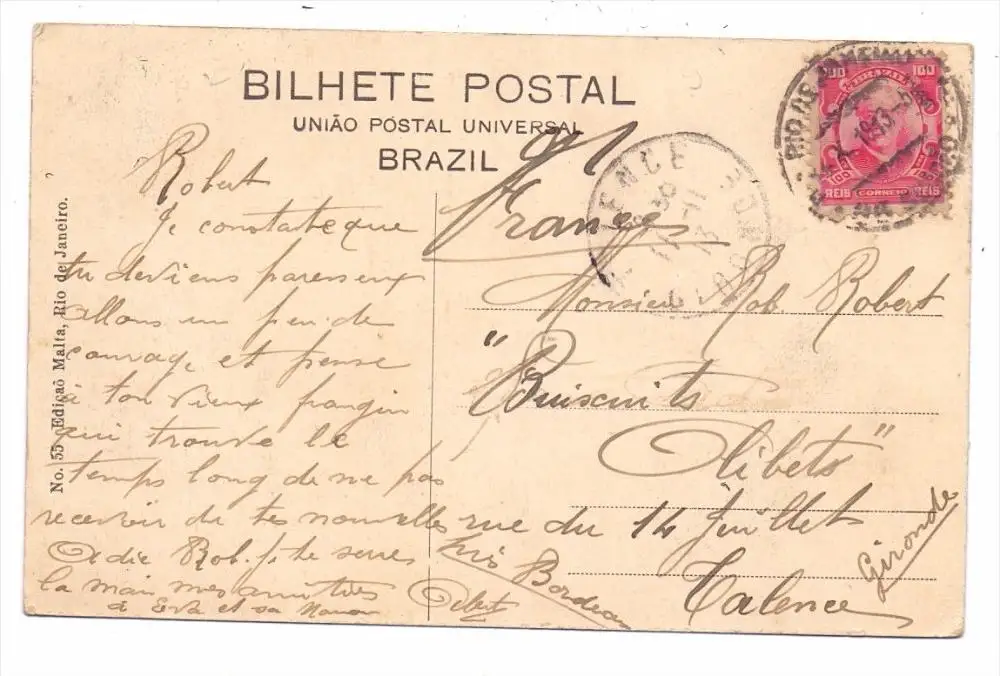 BILHETE POSTAL
UNIÃO POSTAL UNIVERSAL
BRAZIL
100 BRAZIL 100
100 100
REIS CORREIO REIS
RIO DE
No. 55 Edição Malta, Rio de Janeiro.
Robert
Je constate que
tu deviens paresseux
allons un peu de
courage et pense
à ton vieux frangin
qui trouve le
temps long de ne pas
recevoir de tes nouvelles
Adie Rob. je te serres
la main mes amitiés
à et sa
France
Monsieur Rob Robert
"Buiscuits
Olibets"
rue du 14 Juillet
près Bordeaux
Talence
Gironde